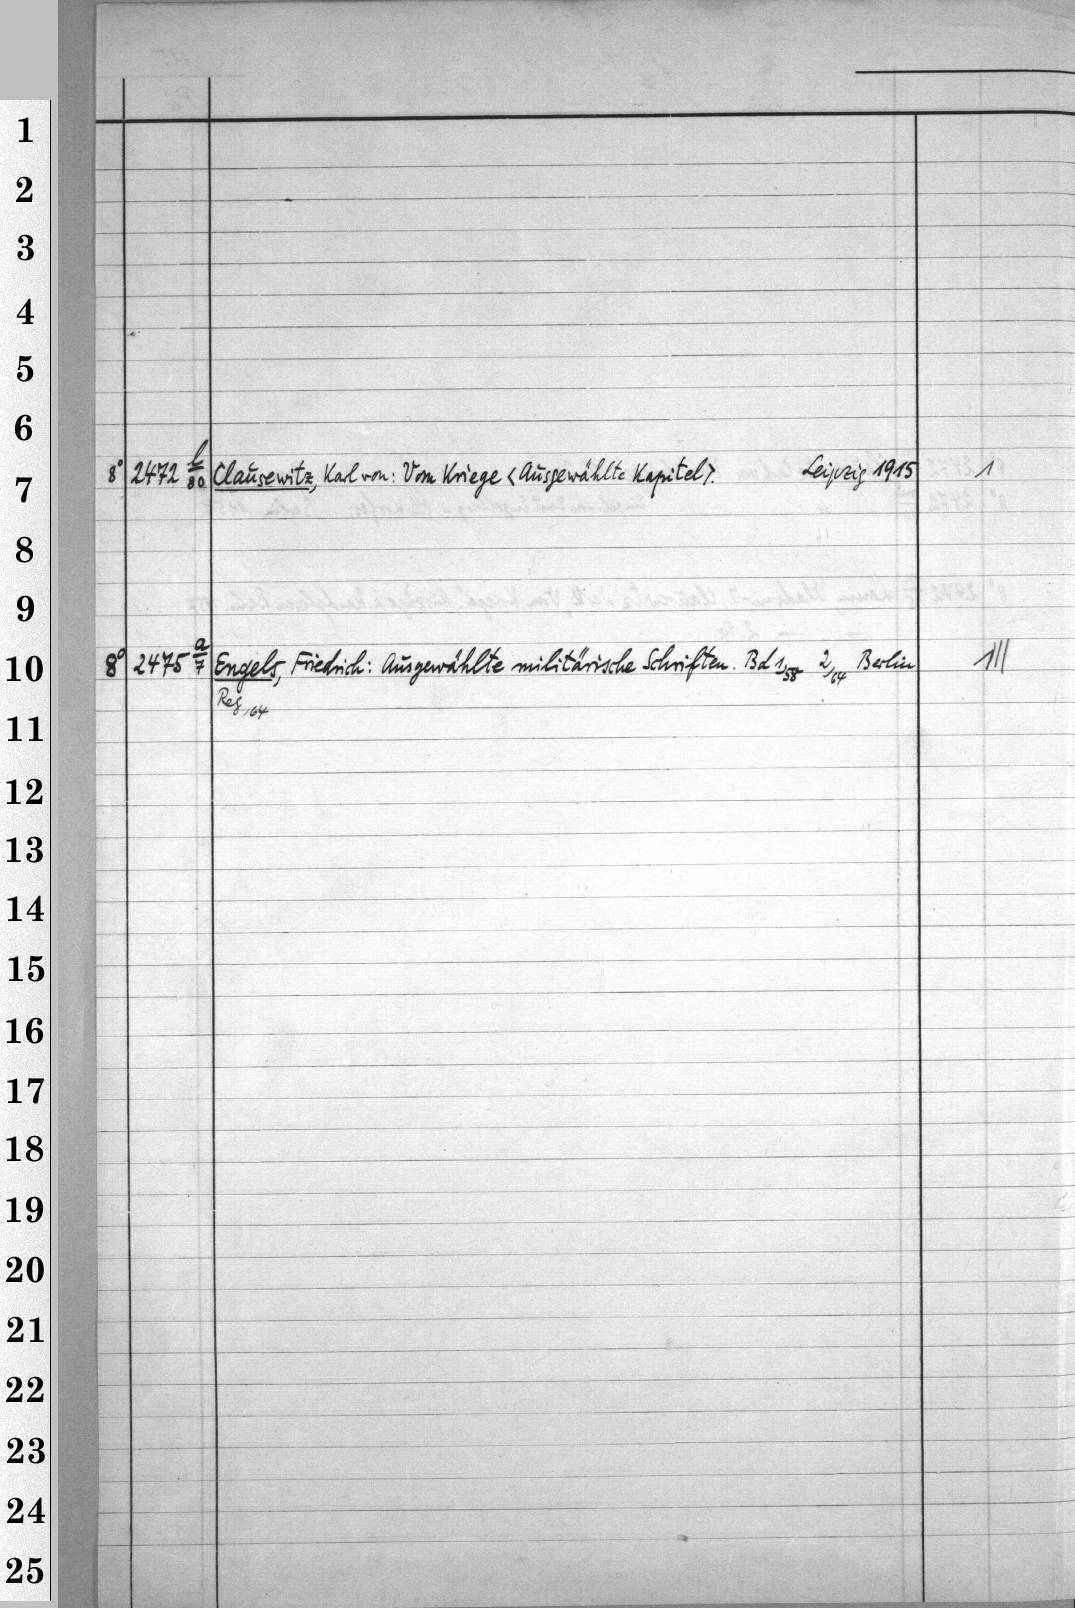 1
2
3
4
5
6
7
8° 2472 l/80 Clausewitz, Karl von: Vom Kriege <Ausgewählte Kapitel>. Leipzig 1915 1
8
9
10
8° 2475 a/7 Engels, Friedrich: Ausgewählte militärische Schriften. Bd 1,58 2,64 Berlin III
Reg,64
11
12
13
14
15
16
17
18
19
20
21
22
23
24
25